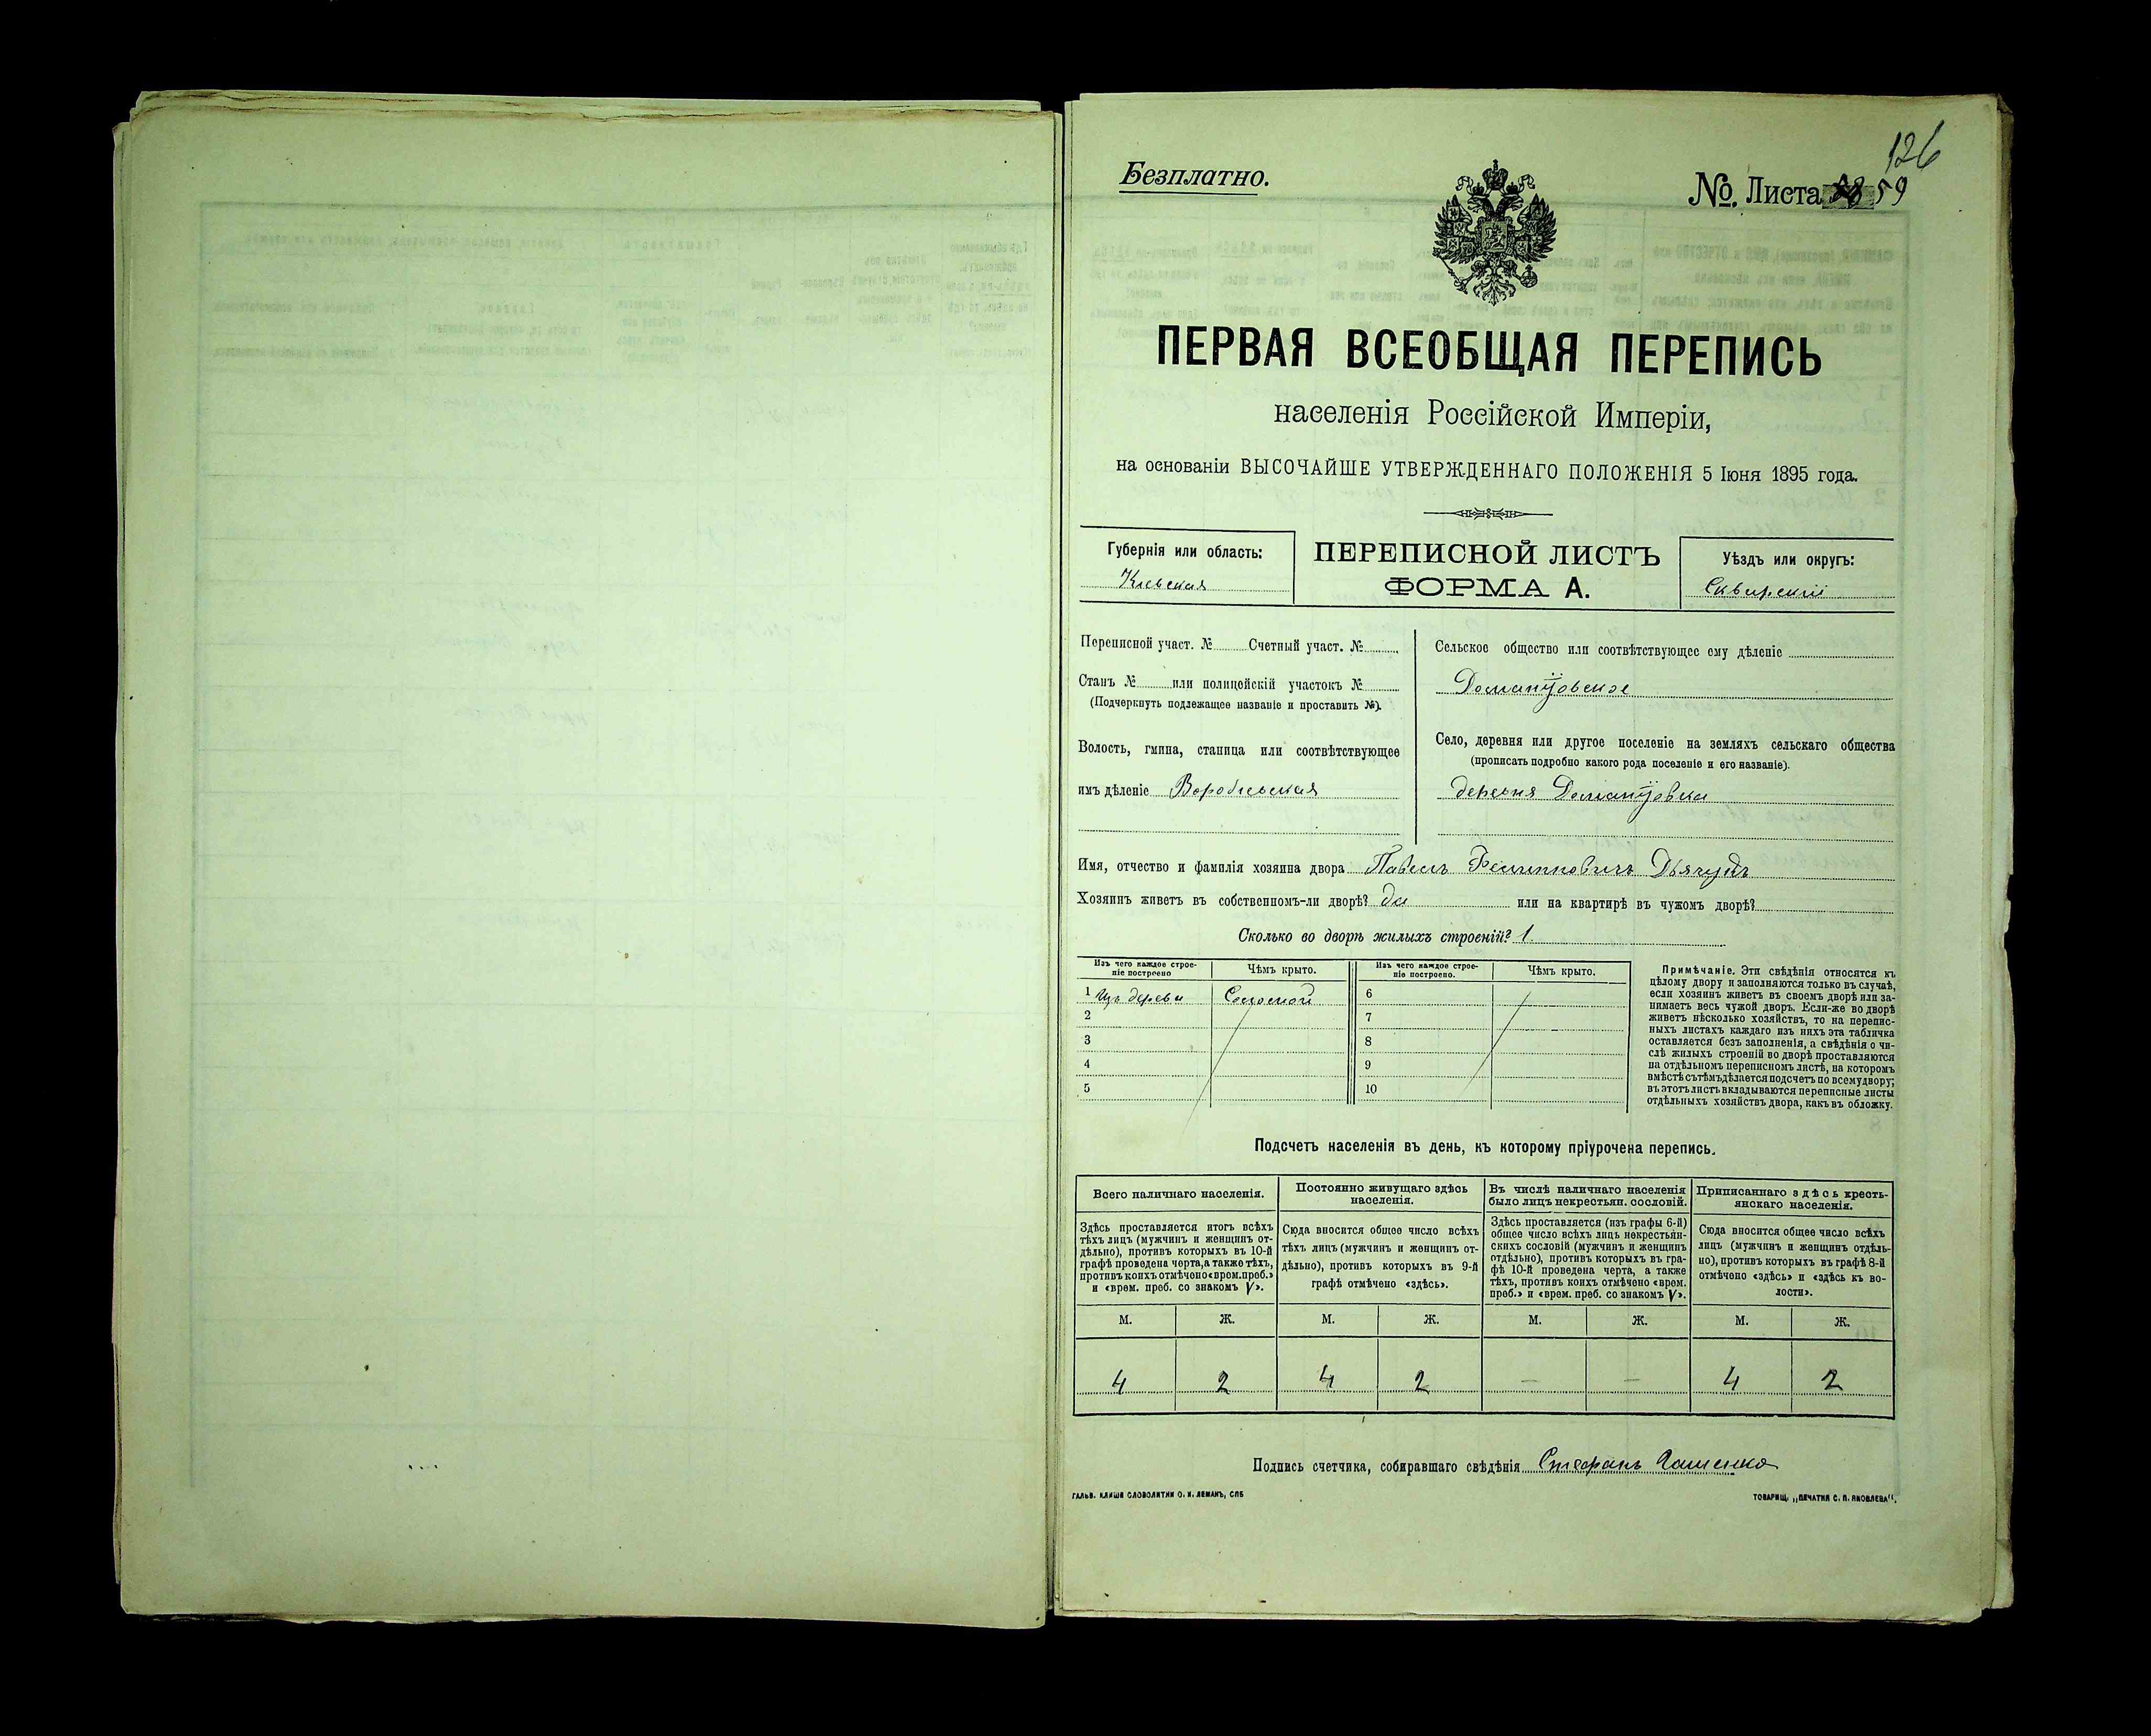 126
Безплатно.
№. Листа 59
ПЕРВАЯ ВСЕОБЩАЯ ПЕРЕПИСЬ
населенія Россійской Имперіи,
на основаніи ВЫСОЧАЙШЕ УТВЕРЖДЕННАГО ПОЛОЖЕНІЯ 5 Іюня 1895 года.
Губернія или область:
Кіевская
ПЕРЕПИСНОЙ ЛИСТЪ
ФОРМА А.
Уѣздъ или округъ:
Сквирскій
Переписной участ. № Счетный участ. №
Станъ № или полицейскій участокъ №
(Подчеркнуть подлежащее названіе и проставить №).
Волость, гмина, станица или соотвѣтствующее
имъ дѣленіе
Сельское общество или соотвѣтствующее ему дѣленіе
Село, деревня или другое поселеніе на земляхъ сельскаго общества
(прописать подробно какого рода поселеніе и его названіе).
деревня
Имя, отчество и фамилія хозяина двора Павелъ
Хозяинъ живетъ въ собственномъ-ли дворѣ? да или на квартирѣ въ чужомъ дворѣ?
Сколько во дворѣ жилыхъ строеній? 1.
Изъ чего каждое строе-
ніе построено
Чѣмъ крыто.
Изъ чего каждое строе-
ніе построено.
Чѣмъ крыто.
1 Изъ дерева Соломой 6
2 7
3 8
4 9
5 10
Примѣчаніе. Эти свѣдѣнія относятся къ
цѣлому двору и заполняются только въ случаѣ,
если хозяинъ живетъ въ своемъ дворѣ или за-
нимаетъ весь чужой дворъ. Если-же во дворѣ
живетъ нѣсколько хозяйствъ, то на перепис-
ныхъ листахъ каждаго изъ нихъ эта табличка
оставляется безъ заполненія, а свѣдѣнія о чи-
слѣ жилыхъ строеній во дворѣ проставляются
на отдѣльномъ переписномъ листѣ, на которомъ
вмѣстѣ съ тѣмъ дѣлается подсчетъ по всему двору;
въ этотъ листъ вкладываются переписные листы
отдѣльныхъ хозяйствъ двора, какъ въ обложку.
Подсчетъ населенія въ день, къ которому пріурочена перепись.
Всего наличнаго населенія.
Здѣсь проставляется итогъ всѣхъ
тѣхъ лицъ (мужчинъ и женщинъ от-
дѣльно), противъ которыхъ въ 10-й
графѣ проведена черта, а также тѣхъ,
противъ коихъ отмѣчено «врем. преб.»
и «врем. преб. со знакомъ V».
Постоянно живущаго здѣсь
населенія.
Сюда вносится общее число всѣхъ
тѣхъ лицъ (мужчинъ и женщинъ от-
дѣльно), противъ которыхъ въ 9-й
графѣ отмѣчено «здѣсь».
Въ числѣ наличнаго населенія
было лицъ некрестьян. сословій.
Здѣсь проставляется (изъ графы 6-й)
общее число всѣхъ лицъ некрестьян-
скихъ сословій (мужчинъ и женщинъ
отдѣльно), противъ которыхъ въ гра-
фѣ 10-й проведена черта, а также
тѣхъ, противъ коихъ отмѣчено «врем.
преб.» и «врем. преб. со знакомъ V».
Приписаннаго здѣсь кресть-
янскаго населенія.
Сюда вносится общее число всѣхъ
лицъ (мужчинъ и женщинъ отдѣль-
но), противъ которыхъ въ графѣ 8-й
отмѣчено «здѣсь» и «здѣсь къ во-
лости».
М. Ж. М. Ж. М. Ж. М. Ж.
4 2 4 2 — — 4 2
Подпись счетчика, собиравшаго свѣдѣнія Стефанъ
ГАЛЬВ. КЛИШЕ СЛОВОЛИТНИ О. И. ЛЕМАНЪ, СПБ
ТОВАРИЩ. „ПЕЧАТНЯ С. П. ЯКОВЛЕВА“.